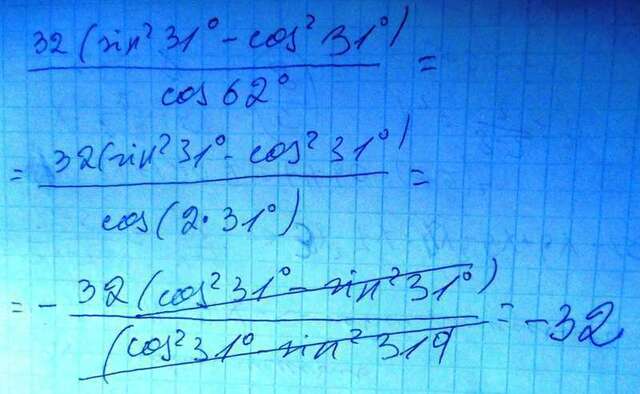 32(sin²31° - cos²31°)
cos 62° =
= 32(sin²31° - cos²31°)
cos(2·31°) =
= - 32(cos²31° - sin²31°)
(cos²31° - sin²31°) = -32